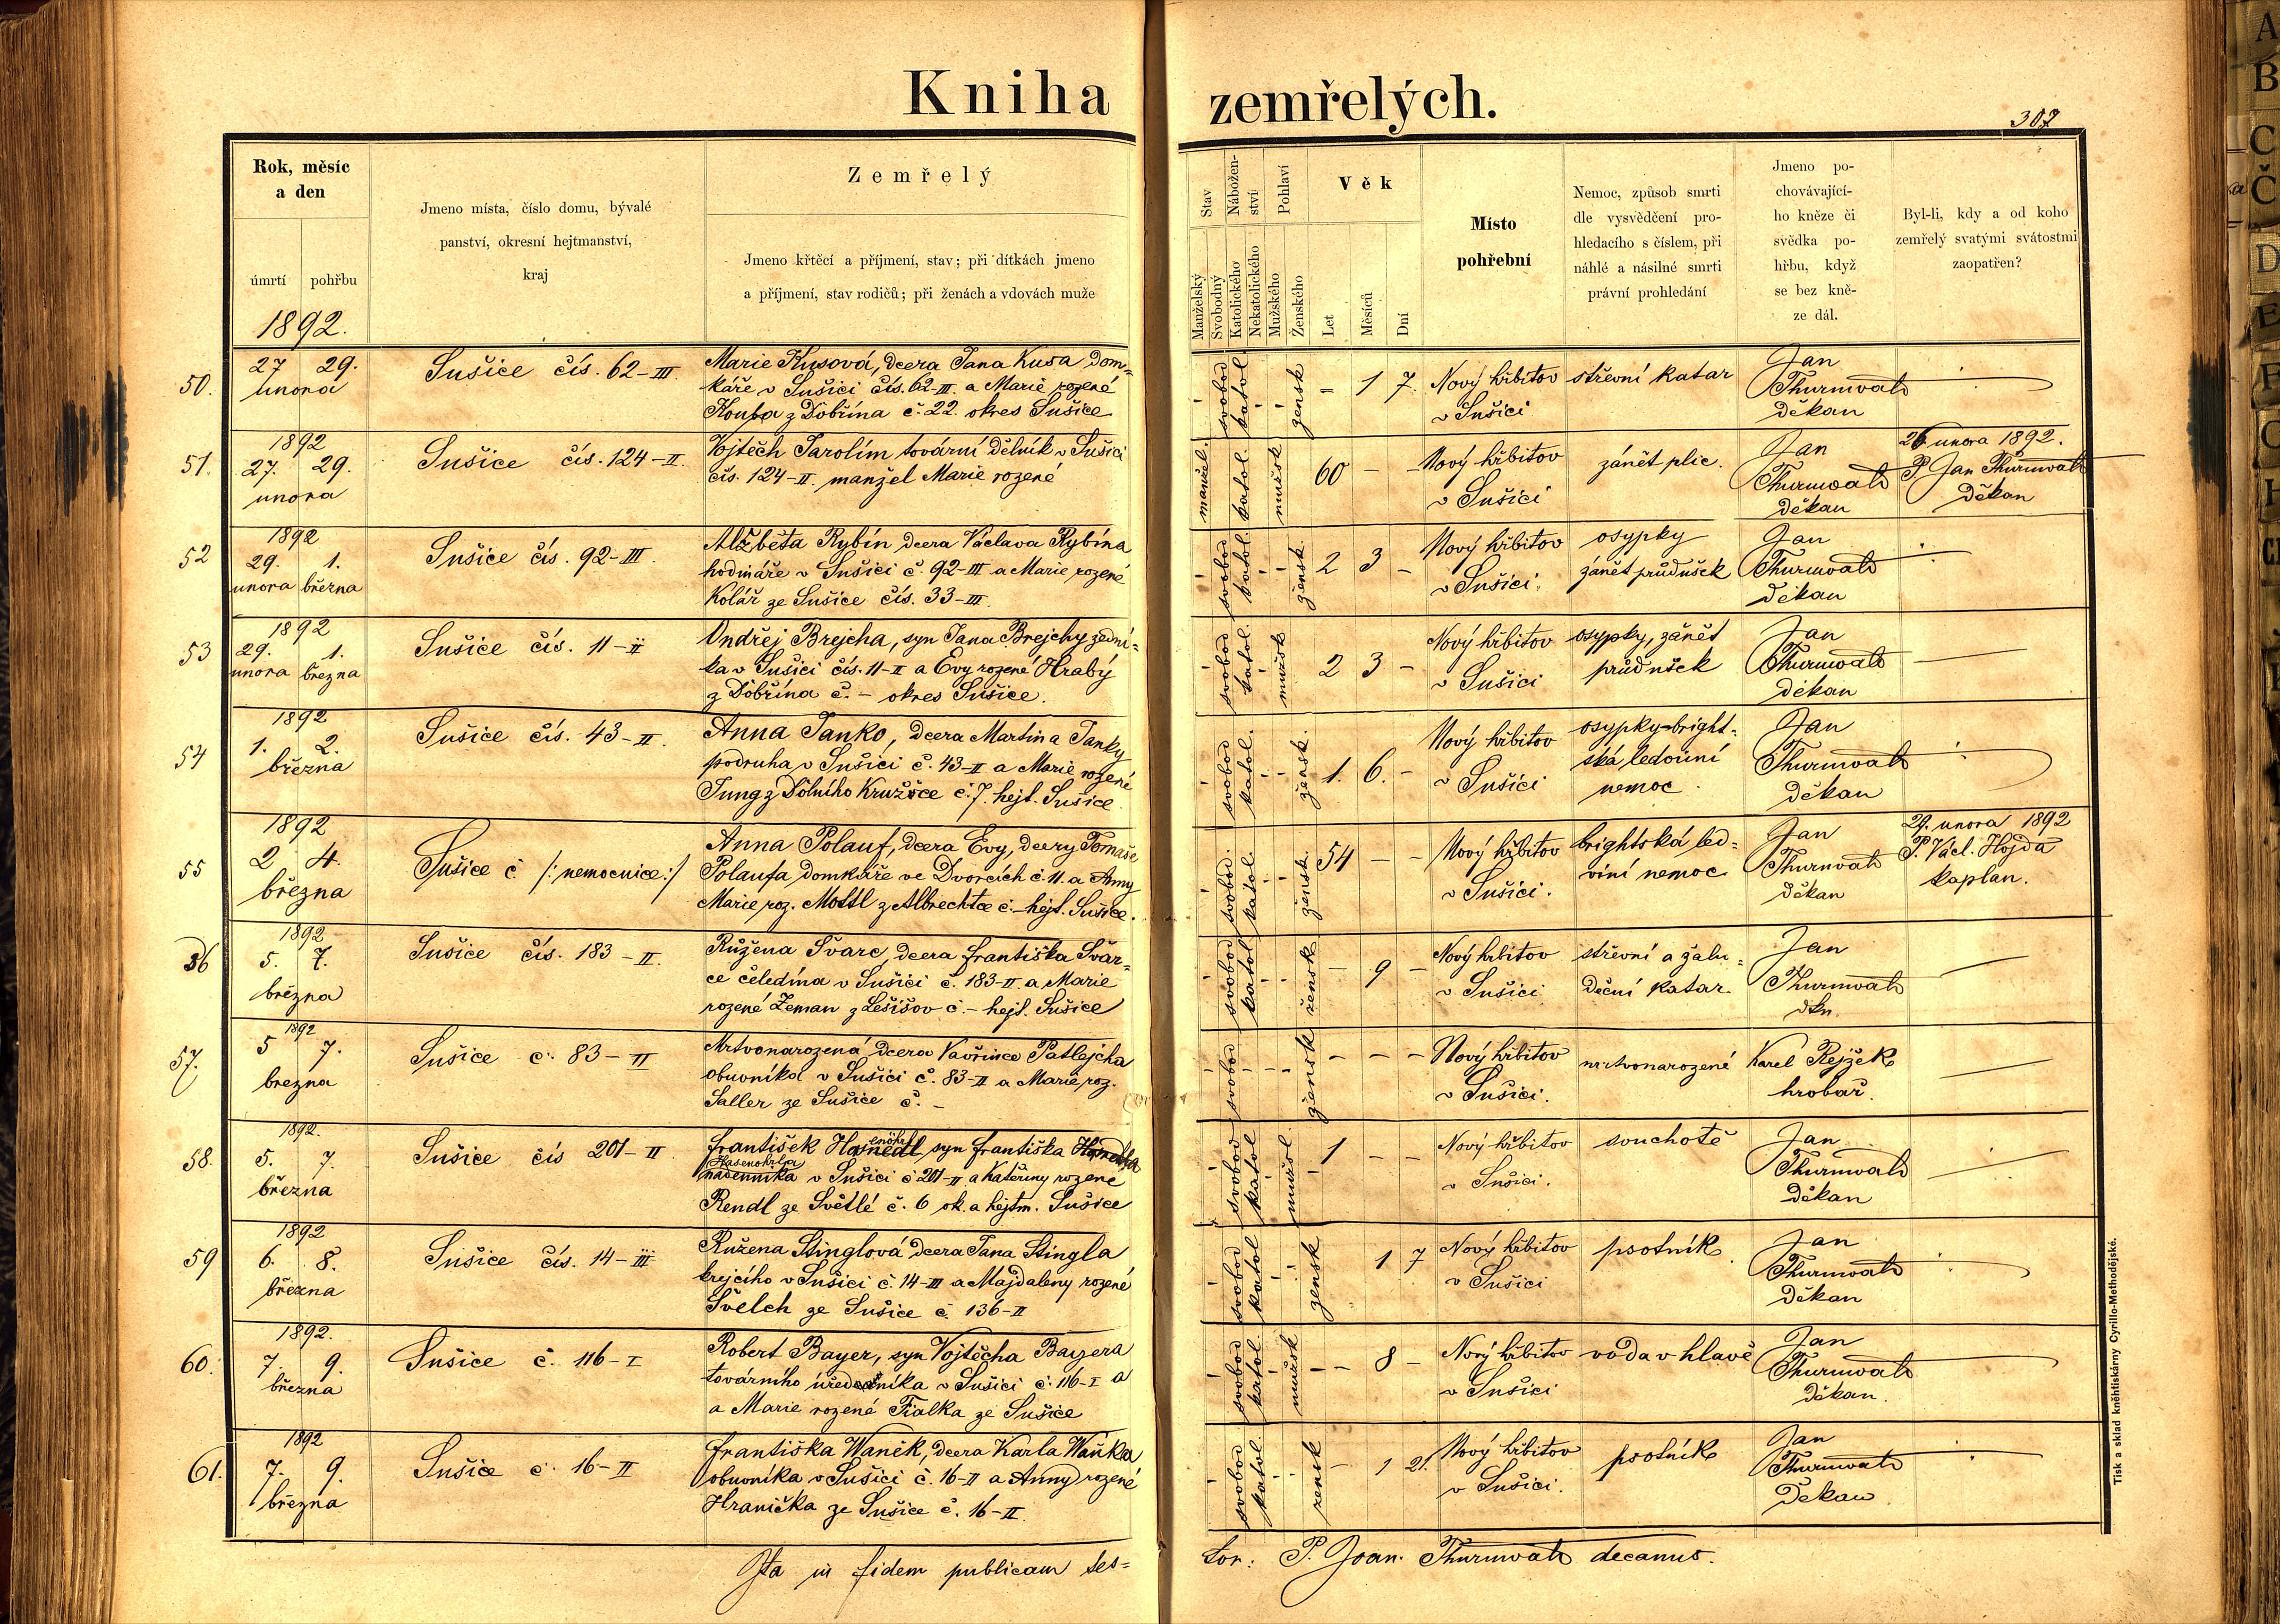 Kniha zemřelých.
307
Rok, měsíc
a den
úmrtí pohřbu
1892.
Jmeno místa, číslo domu, bývalé
panství, okresní hejtmanství,
kraj
Zemřelý
Jmeno křtěcí a příjmení, stav; při dítkách jmeno
a příjmení, stav rodičů; při ženách a vdovách muže
Stav
Manželský
Svobodný
Nábožen-
ství
Katolického
Nekatolického
Pohlaví
Mužského
Ženského
Věk
Let
Měsíců
Dní
Místo
pohřební
Nemoc, způsob smrti
dle vysvědčení pro-
hledacího s číslem, při
náhlé a násilné smrti
právní prohledání
Jmeno po-
chovávající-
ho kněze či
svědka po-
hřbu, když
se bez kně-
ze dál.
Byl-li, kdy a od koho
zemřelý svatými svátostmi
zaopatřen?
50.
27 29.
února
Sušice čís. 62-III.
Marie Kusová, dcera Jana Kusa dom=
káře v Sušici čís. 62-III. a Marie rozené
Kouba z Dobřína č. 22. okres Sušice
svobod katol žensk
- 1 7.
Nový hřbitov
v Sušici
střevní katar
Jan
Thurnwald
děkan
51.
1892
27. 29.
unora
Sušice čís. 124-II.
Vojtěch Jarolím tovární dělník v Sušici
čís. 124-II. manžel Marie rozené
manžel. katol. mužsk
60 - -
Nový hřbitov
v Sušici
zánět plic.
Jan
Thurnwald
děkan
26 unora 1892.
P. Jan Thurnwald
Děkan
52
1892
29. 1.
unora března
Sušice čís. 92-III.
Alžběta Rybín dcera Václava Rybína
hodináře v Sušici č. 92-III a Marie rozené
Kolář ze Sušice čís. 33-III.
svobod katol. žensk.
2 3 -
Nový hřbitov
v Sušici.
osypky
zánět průdušek
Jan
Thurnwald
děkan
53
1892
29. 1.
unora března
Sušice čís. 11-II
Ondřej Brejcha, syn Jana Brejchy zední=
ka v Sušici čís. 11-II a Evy rozené Hrabý
z Dobřína č. - okres Sušice.
svobod katol. mužsk
2 3 -
Nový hřbitov
v Sušici
osypky, zánět
průdušek
Jan
Thurnwald
děkan
54
1892
1. 2.
března
Sušice čís. 43-II.
Anna Janko, dcera Martina Janky
podruha v Sušici č. 43-II a Marie rozené
Jung z Dolního č. 7. hejt. Sušice
svobod katol. žensk.
1. 6. -
Nový hřbitov
v Sušici
osypky-bright=
ská ledvinní
nemoc.
Jan
Thurnwald
děkan
55
1892
2 4.
března
Sušice č. /: nemocnice :/
Anna Polauf, dcera Evy, dcery Tomáše
Polaufa domkáře ve Dvorcích č. 11. a Anny
Marie roz. Mottl z Albrechtce č. - hejt. Sušice.
svobod. katol. žensk.
54 - -
Nový hřbitov
v Sušici.
brightská led=
viní nemoc
Jan
Thurnwald
děkan
29. unora 1892
P. Václ. Hojda
kaplan.
56
1892
5. 7.
března
Sušice čís. 183-II.
Růžena Švarc, dcera Františka Švar=
ce čeledína v Sušici č. 183-II. a Marie
rozené Zeman z Lešišov č. - hejt. Sušice
svobod katol žensk
- 9 -
Nový hřbitov
v Sušici
střevní a žalu=
deční katar.
Jan
Thurnwald
dkn.
57.
1892
5 7.
března
Sušice č. 83-II
Mrtvonarozená dcera Vavřince Patlejcha
obuvníka v Sušici č. 83-II a Marie roz.
Saller ze Sušice č. -
svobod žensk
- - -
Nový hřbitov
v Sušici.
mrtvonarozené
Karel Rejžek
hrobař.
58.
1892.
5. 7.
března
Sušice čís 201-II.
František Hasenöhrl, syn Františka
Hasenöhrla
nádenníka v Sušici č 201-II a Kateřiny rozené
Rendl ze Světlé č. 6 ok. a hejtm. Sušice
svobod katol mužsk.
1 - -
Nový hřbitov
v Sušici.
souchotě
Jan
Thurnwald
děkan
59
1892
6. 8.
března
Sušice čís. 14-III
Ružena Stinglová dcera Jana Stingla
krejcího v Sušici č. 14-III a Majdaleny rozené
Švelch ze Sušice č. 136-II
svobod katol žensk
1 7
Nový hřbitov
v Sušici
psotník
Jan
Thurnwald
děkan
60.
1892.
7. 9.
března
Sušice č. 116-I
Robert Bayer, syn Vojtěcha Bayera
továrního úředníka v Sušici č. 116-I a
a Marie rozené Fialka ze Sušice
svobod katol. mužsk
- 8 -
Nový hřbitov
v Sušici
voda v hlavě
Jan
Thurnwald
děkan.
61.
1892
7. 9.
března
Sušice č. 16-II
Františka Waněk, dcera Karla Waňka
obuvníka v Sušici č. 16-II a Anny rozené
Hranička ze Sušice č. 16-II.
svobod katol. žensk
- 1 21.
Nový hřbitov
v Sušici.
psotník
Jan
Thurnwald
Děkan
Ita in fidem publicam tes=
tor: P. Joan. Thurnwald decanus.
Tisk a sklad kněhtiskárny Cyrillo-Methodějské.
A
B
C
Č
D
E
F